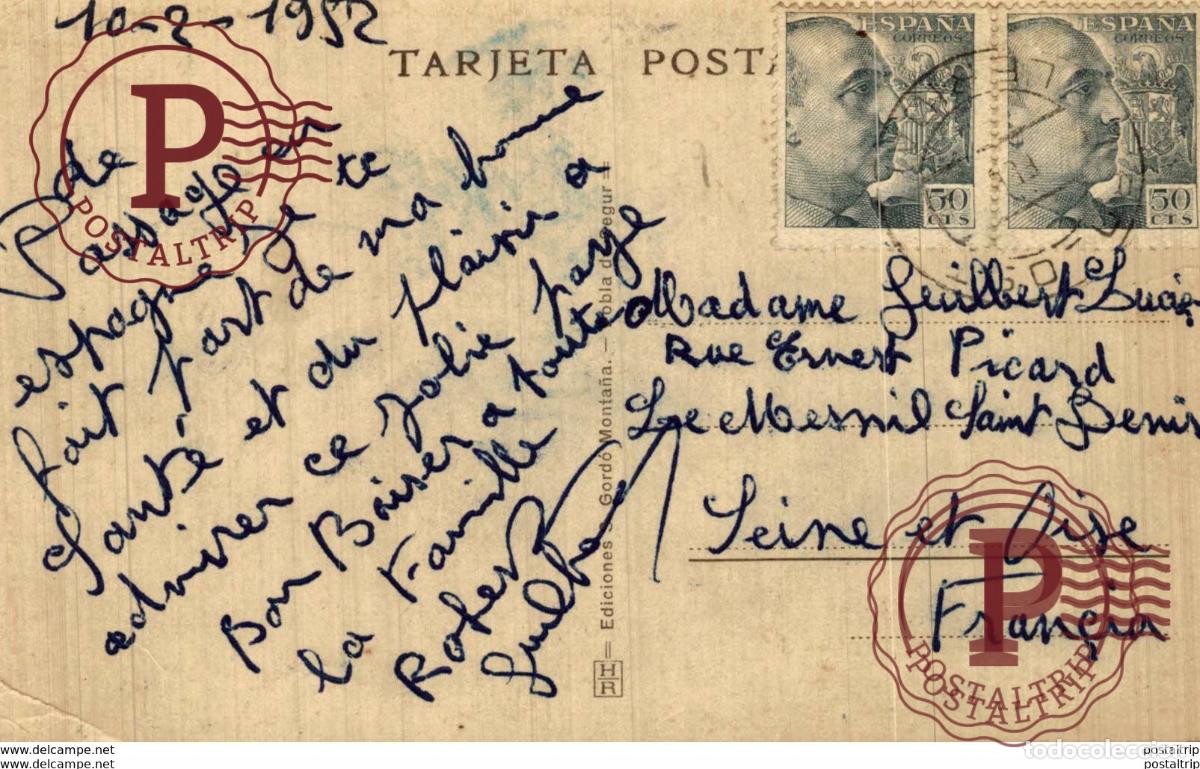 10-2-1952
TARJETA POSTA
ESPAÑA
CORREOS
50
CTS
ESPAÑA
CORREOS
50
CTS
P
POSTALTRIP
de
Passage en
espagne Je te
fait part de ma bonne
Santé et du plaisir a
admirer ce Jolie paye
Bon Baiser a toute
la Famille
Guilbert
Ediciones G. Gordó Montaña. — Pobla de Segur
HR
Madame Guilbert Lucie
Rue Ernest Picard
Le Mesnil Saint Denis
Seine et Oise
Françia
P
POSTALTRIP
POSTALTRIP
todocoleccion
www.delcampe.net
postaltrip
www.delcampe.net
postaltrip